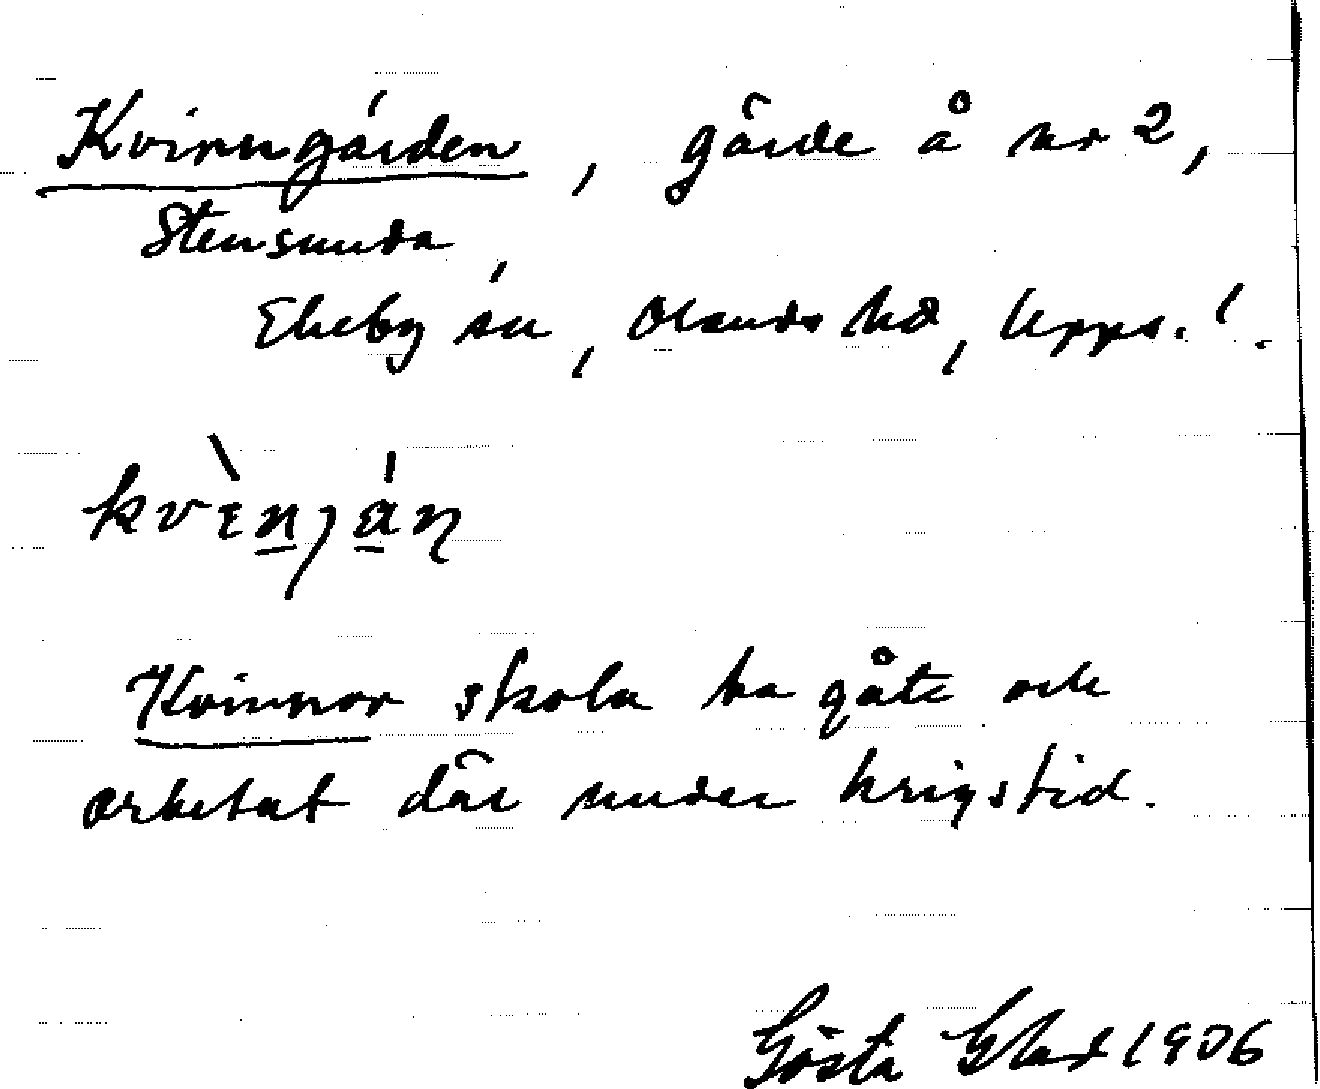 Kvinngärden, gärde å nr 2,
Stensunda,
Ekeby sn, Olands hd, Upps. l.
kvìnján
Kvinnor skola ha gått och
arbetat där under krigstid.
Gösta Glad 1906